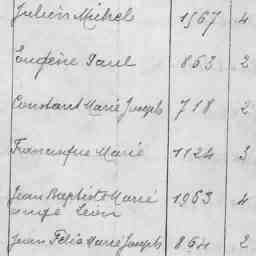 Julien Michel 1567 4
Eugène Paul 853 2
Constant Marie Joseph 718 2
Françoise Marie 1124 3
Jean Baptiste Marie 1953 4
ange Léon
Jean Félix Marie Joseph 864 2